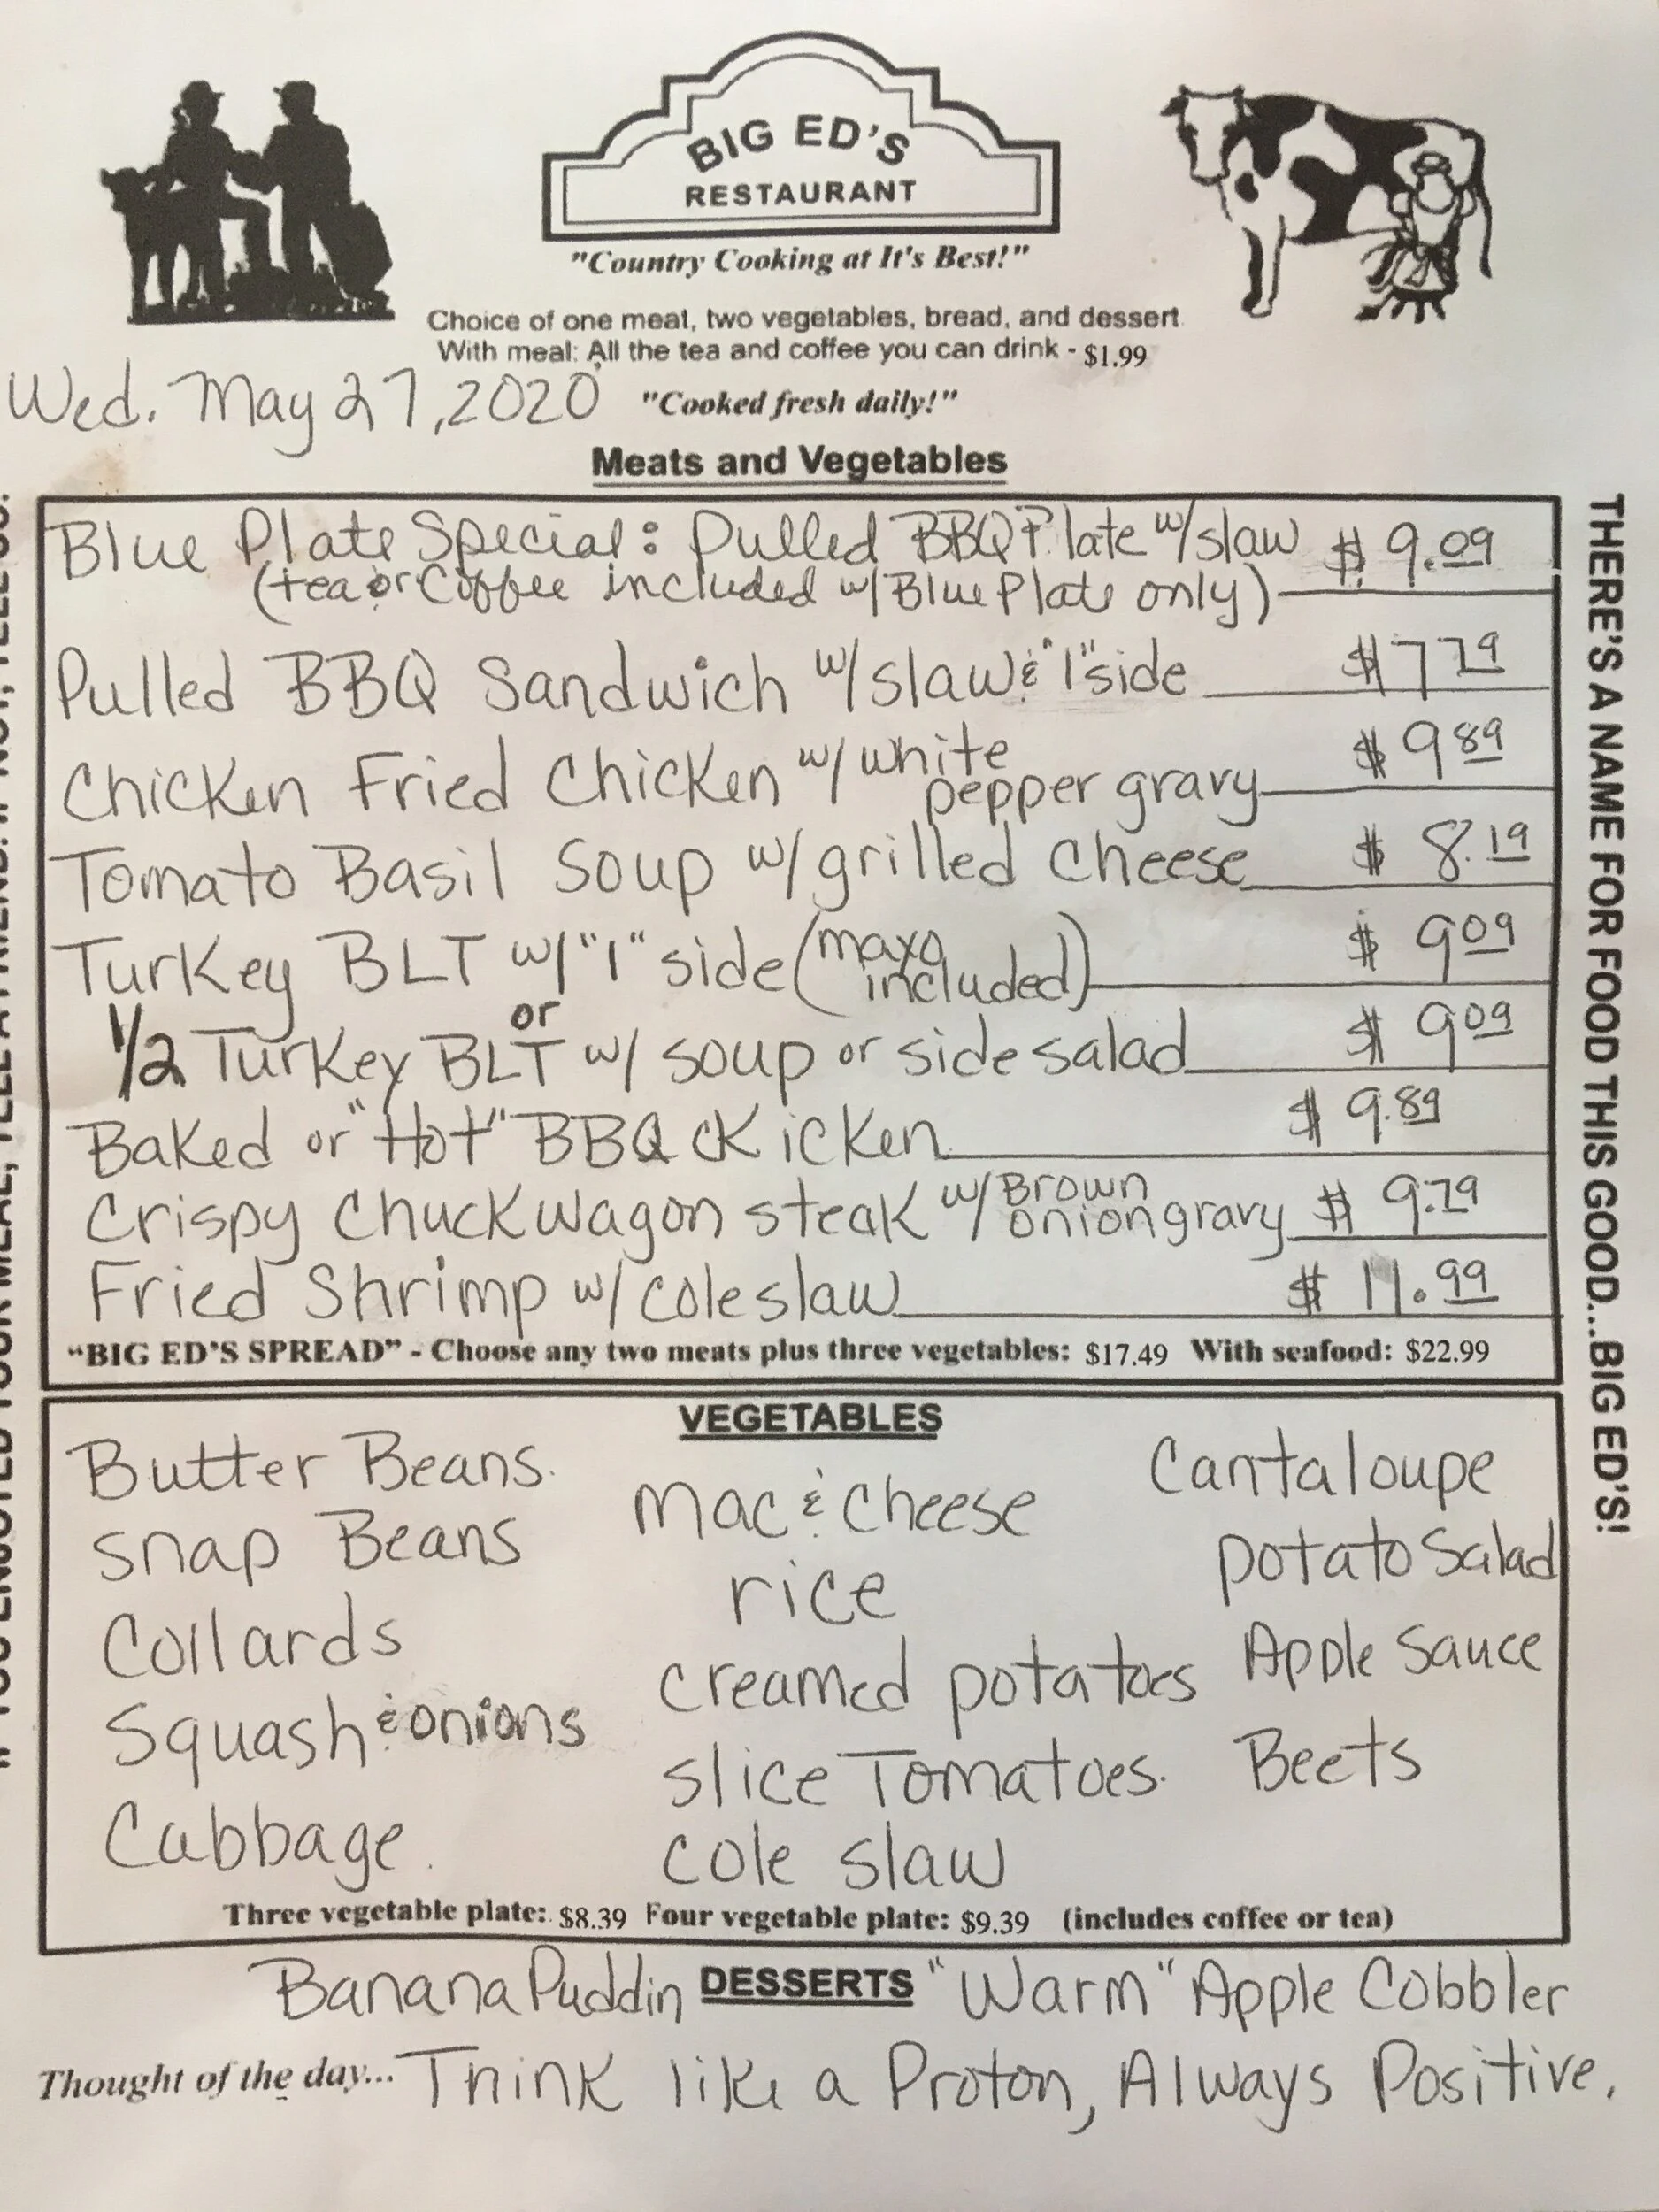 BIG ED'S
RESTAURANT
"Country Cooking at It's Best!"
Choice of one meat, two vegetables, bread, and dessert
With meal: All the tea and coffee you can drink - $1.99
Wed. May 27, 2020
"Cooked fresh daily!"
Meats and Vegetables
Blue Plate Special: Pulled BBQ Plate w/slaw $ 9.09
(tea or Coffee included w/ Blue Plate only)
Pulled BBQ Sandwich w/slaw & "1" side $7 79
Chicken Fried Chicken w/ white pepper gravy $ 9 89
Tomato Basil Soup w/ grilled Cheese $ 8.19
Turkey BLT w/ "1" side (mayo included) $ 9 09
or
1/2 Turkey BLT w/ soup or side salad $ 9 09
Baked or "Hot" BBQ chicken $ 9.89
Crispy Chuckwagon steak w/ Brown onion gravy $ 9.79
Fried Shrimp w/ coleslaw $ 11.99
"BIG ED'S SPREAD" - Choose any two meats plus three vegetables: $17.49 With seafood: $22.99
THERE'S A NAME FOR FOOD THIS GOOD...BIG ED'S!
VEGETABLES
Butter Beans
snap Beans
Collards
Squash & onions
Cabbage
Mac & Cheese
rice
creamed potatoes
slice Tomatoes
cole slaw
Cantaloupe
potato Salad
Apple Sauce
Beets
Three vegetable plate: $8.39 Four vegetable plate: $9.39 (includes coffee or tea)
Banana Puddin DESSERTS "Warm" Apple Cobbler
Thought of the day... Think like a Proton, Always Positive.